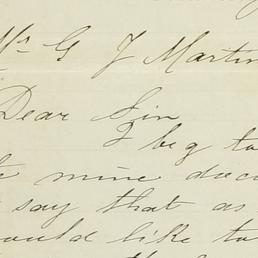 Mr G J Martin
Dear Sir
I beg to
mine
say that as
would like to